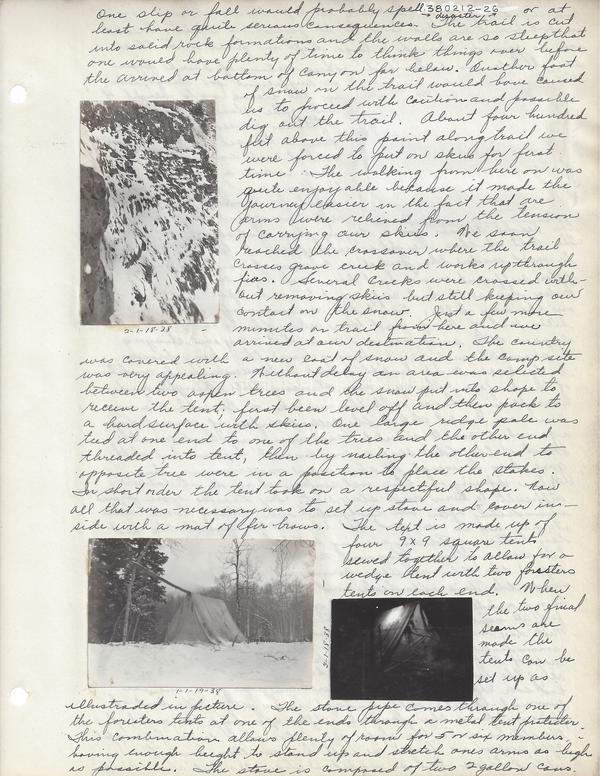 One slip or fall would probably spell disaster or at
380212-26
least have quite serious consequences. The trail is cut
into solid rock formations and the walls are so steep that
one would have plenty of time to think things over before
the arrived at bottom of canyon far below. Another foot
of snow on the trail would have caused
us to proceed with caution and possible
dig out the trail. About four hundred
feet above this point along trail we
were forced to put on skiis for first
time. The walking from here on was
quite enjoyable because it made the
journey easier in the fact that are
arms were relieved from the tension
of carrying our skiis. We soon
reached the crossover where the trail
crosses grove creek and works up through
firs. Several creeks were crossed with-
out removing skiis but still keeping our
contact on the snow. Just a few more
minutes on trail from here and we
arrived at our destination. The country
2-1-18-38
was covered with a new coat of snow and the camp site
was very appealing. Without delay an area was selected
between two aspen trees and the snow put into shape to
receive the tent, first been level off and then pack to
a hard surface with skiis. One large ridge pole was
tied at one end to one of the trees and the other end
threaded into tent, then by nailing the other end to
opposite tree were in a position to place the stakes.
In short order the tent took on a respectful shape. Now
all that was necessary was to set up stove and cover in-
side with a mat of fir brows. The tent is made up of
four 9x9 square tents
sewed together to allow for a
wedge tent with two foresters
tents on each end. When
the two final
seams are
made the
tents can be
set up as
1-1-19-38
3-1-18-38
illustraded in picture. The stove pipe comes through one of
the foresters tents at one of the ends through a metal tent protector.
This combination allows plenty of room for 5 or six members,
having enough height to stand up and stretch ones arms as high
as possible. The stove is composed of two 2 gallon cans.